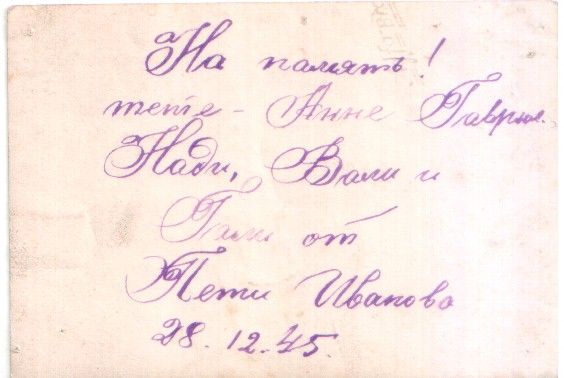 На память!
тете - Анне Гаврил.
Нади, Вали и
Гали от
Пети Иванова
28. 12. 45.